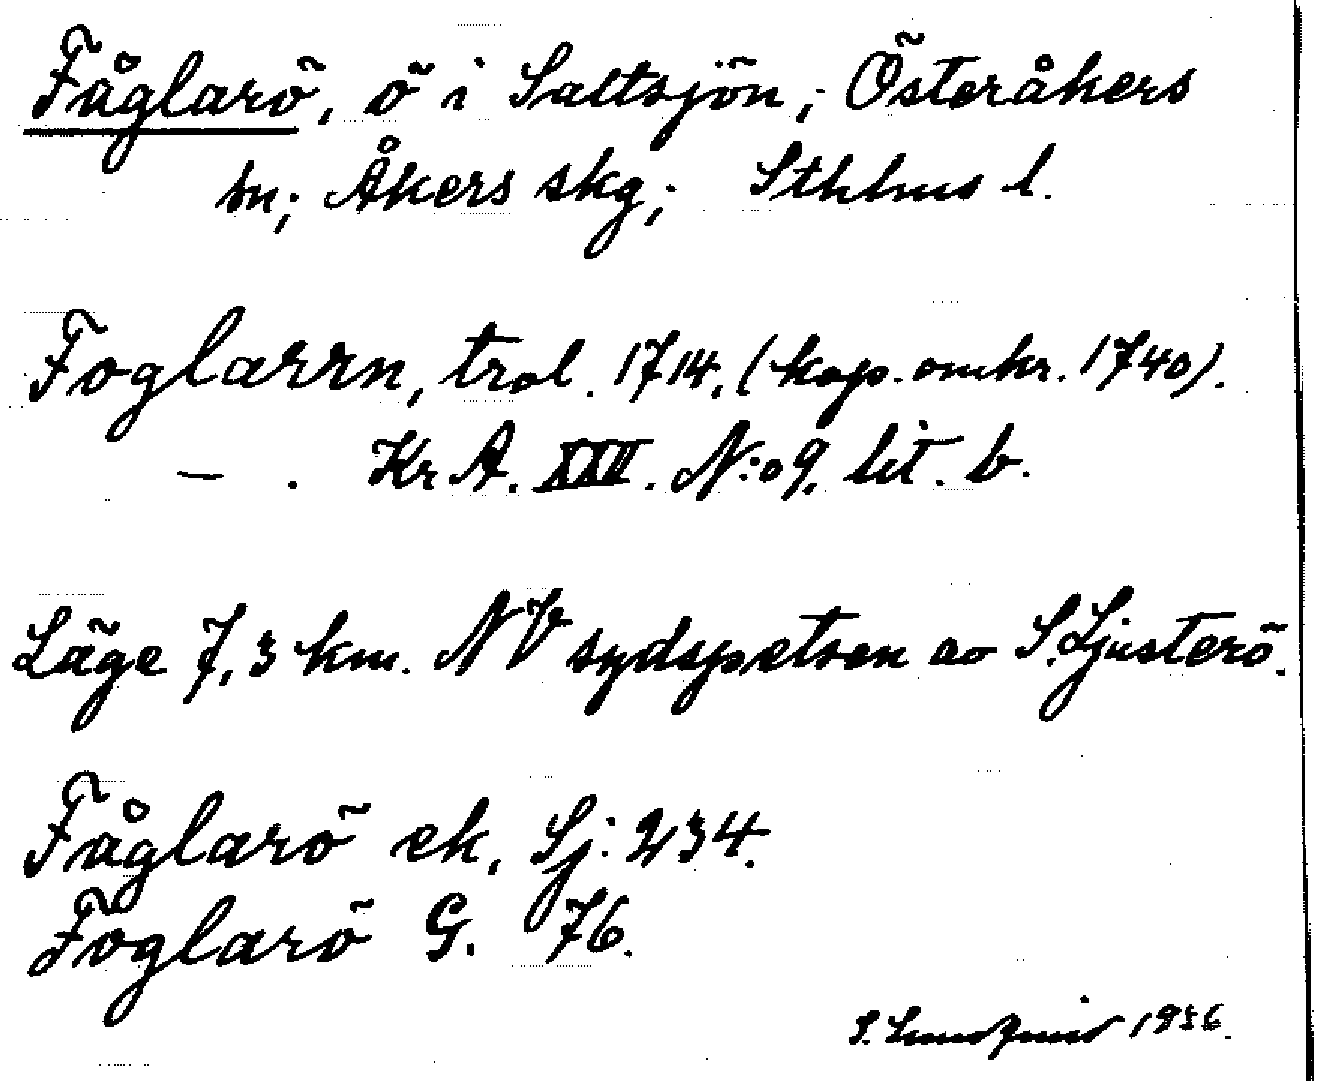 Fåglarö, ö i Saltsjön, Österåkers
sn; Åkers skg; Sthlms l.
Foglarrn, trol. 1714. (kop. omkr. 1740).
— . Kr A. XXV. N:o 9. lit. b.
Läge 7,3 km. NV sydspetsen av S. Ljusterö.
Fåglarö ek. Sj: 234.
Foglarö G. 76.
S. Lundqvist 1936.